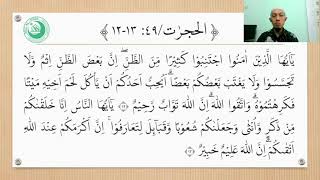 ﴿ الحجرٰت/٤٩: ١٣-١٢ ﴾
يٰٓاَيُّهَا الَّذِيْنَ اٰمَنُوا اجْتَنِبُوْا كَثِيْرًا مِّنَ الظَّنِّۖ اِنَّ بَعْضَ الظَّنِّ اِثْمٌ وَّلَا
تَجَسَّسُوْا وَلَا يَغْتَبْ بَّعْضُكُمْ بَعْضًاۗ اَيُحِبُّ اَحَدُكُمْ اَنْ يَّأْكُلَ لَحْمَ اَخِيْهِ مَيْتًا
فَكَرِهْتُمُوْهُۗ وَاتَّقُوا اللّٰهَۗ اِنَّ اللّٰهَ تَوَّابٌ رَّحِيْمٌ ۝١٢ يٰٓاَيُّهَا النَّاسُ اِنَّا خَلَقْنٰكُمْ
مِّنْ ذَكَرٍ وَّاُنْثٰى وَجَعَلْنٰكُمْ شُعُوْبًا وَّقَبَاۤىِٕلَ لِتَعَارَفُوْاۗ اِنَّ اَكْرَمَكُمْ عِنْدَ اللّٰهِ
اَتْقٰىكُمْۗ اِنَّ اللّٰهَ عَلِيْمٌ خَبِيْرٌ ۝١٣